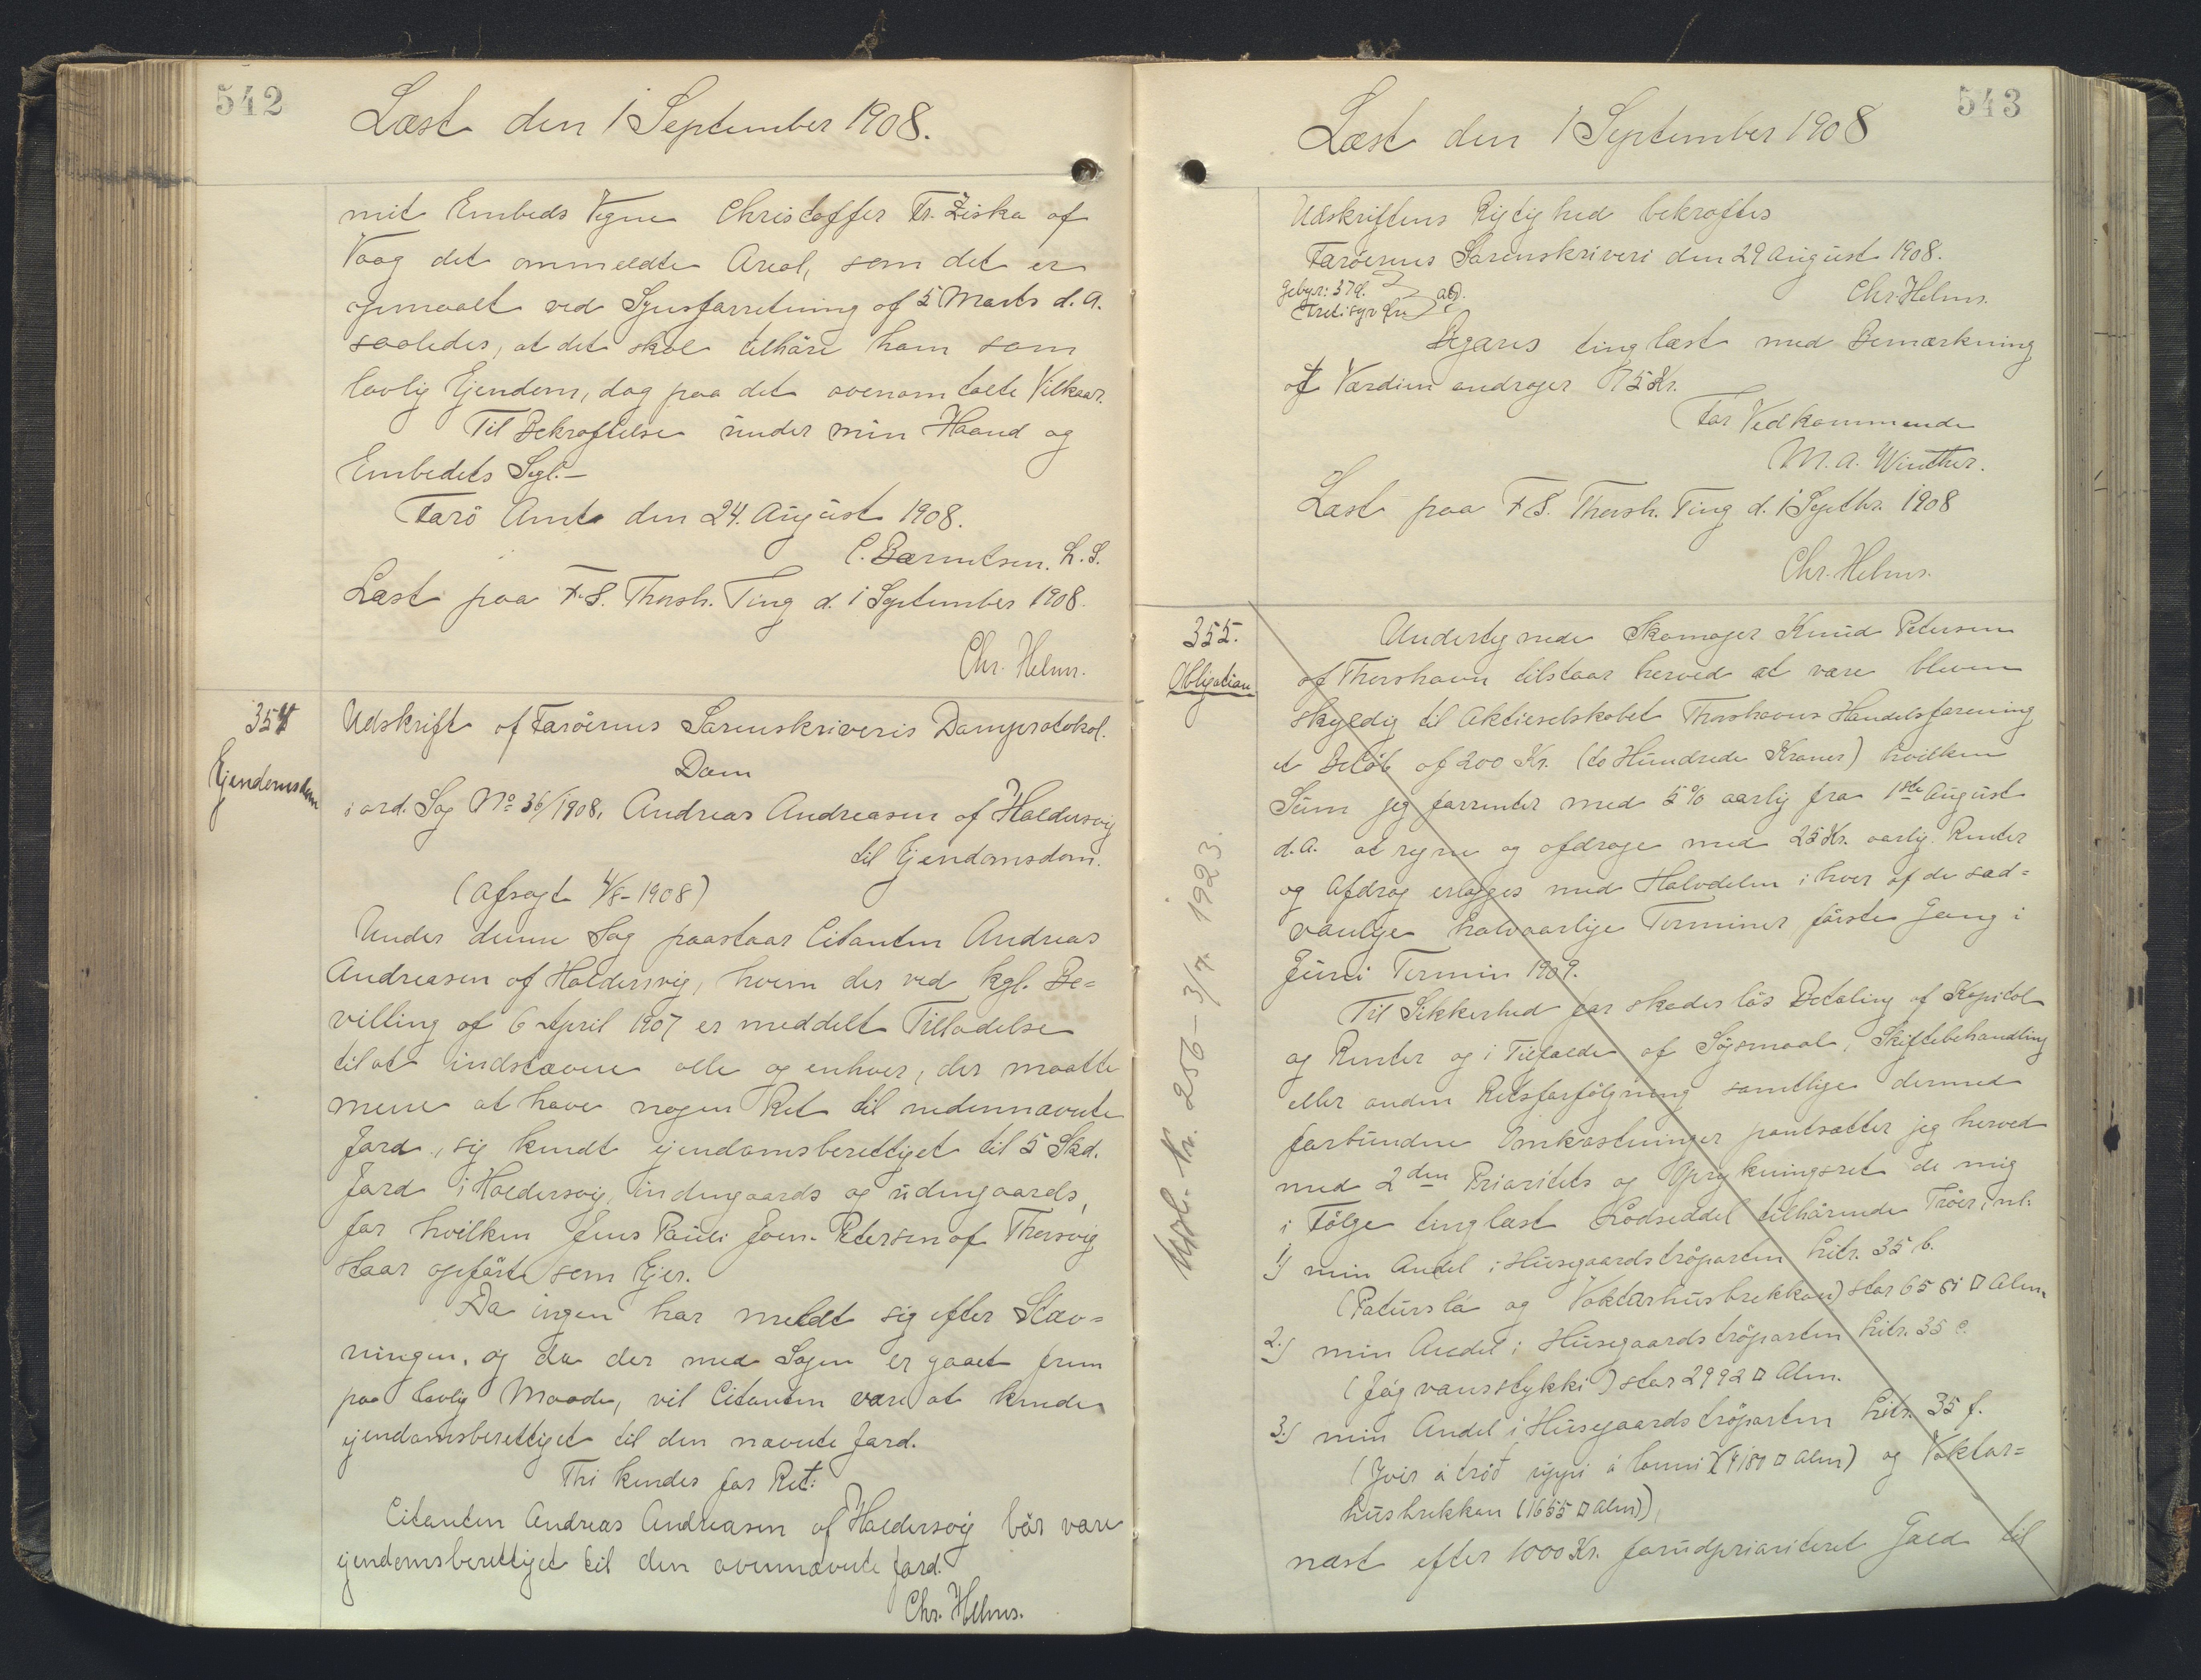 542
Læst den 1 September 1908.
mit Embeds Vegne Christoffer Fr. Ziska af
Vaag det ommeldte Areal, som det er
opmaalt ved Synsforretning af 5 Marts d. A.
saaledes, at det skal tilhöre ham som
lovlig Ejendom, dog paa det ovenomtalte Vilkaar.
Til Bekræftelse under min Haand og
Embedets Segl.-
Færö Amt den 24. August 1908.
C. Bærentsen. L.S.
Læst paa F.S. Thorsh. Ting d. 1 September 1908.
Chr. Helms.
354
Ejendomsdom
Udskrift af Færöernes Sorenskriveris Domprotokol.
Dom
i ord. Sag No 36/1908, Andreas Andreasen af Haldersvig
til Ejendomsdom.
(Afsagt 4/8-1908)
Under denne Sag paastaar Citanten Andreas
Andreasen af Haldersvig, hvem der ved kgl. Be=
villing af 6 April 1907 er meddelt Tilladelse
til at indstævne alle og enhver, der maatte
mene at have nogen Ret til nedennævnte
Jord, sig kendt ejendomsberettiget til 5 Skd.
Jord i Haldersvig, indengaards og udengaards,
for hvilken Jens Pauli Joen-Petersen af Thorsvig
staar opfört som Ejer.
Da ingen har meldt sig efter Stæv=
ningen, og da der med Sagen er gaaet frem
paa lovlig Maade, vil Citanten være at kende
ejendomsberettiget til den nævnte Jord.
Thi kendes for Ret:
Citanten Andreas Andreasen af Haldersvig bör være
ejendomsberettiget til den ovennævnte Jord.
Chr. Helms.
543
Læst den 1 September 1908
Udskriftens Rigtighed bekræftes
Færöernes Sorenskriveri den 29 August 1908.
Gebyr: 37 Ö.
Chr. Helms.
Begæres tinglæst med Bemærkning
at Værdien andrager 75 Kr.
For Vedkommende
M. A. Winther.
Læst paa F.S. Thorsh. Ting d. 1 Septbr. 1908
Chr. Helms.
355.
Obligation
Undertegnede Skomager Knud Petersen
af Thorshavn tilstaar herved at være bleven
skyldig til Aktieselskabet Thorshavns Handelsforening
et Belöb af 200 Kr. (to Hundrede Kroner) hvilken
Sum jeg forrenter med 5% aarlig fra 1ste August
d.A. at regne og afdrage med 25 Kr. aarlig. Renter
og Afdrag erlægges med Halvdelen i hver af de sæd=
vanlige halvaarlige Terminer förste Gang i
Juni Termin 1909.
Til Sikkerhed for skadeslös Betaling af Kapital
og Renter og i Tilfælde af Sögsmaal, Skiftebehandling
eller anden Retsforfölgning samtlige dermed
forbundne Omkostninger pantsætter jeg herved
med 2den Prioritets og Oprykningsret de mig
i Fölge tinglæst Lodseddel tilhörende Tröer, nl.
1) min Andel i Húsegaardströparten Litr. 35 b.
(Paturslá og Vaktarhusbrekkan) stor 6581 □ Alen
2.) min Andel i Húsegaardströparten Litr. 35 c.
(Jógvansstykki) stor 2992 □ Alen.
3.) min Andel i Húsegaardströparten Litr. 35 f.
(Jvir á tröð uppi á lonni (4189 □ Alen) og Vaktar=
husbrekkan (1655 □ Alen)),
næst efter 1000 Kr. forudprioriteret Gæld til
Udsl. Nr. 256 - 3/7. 1923.